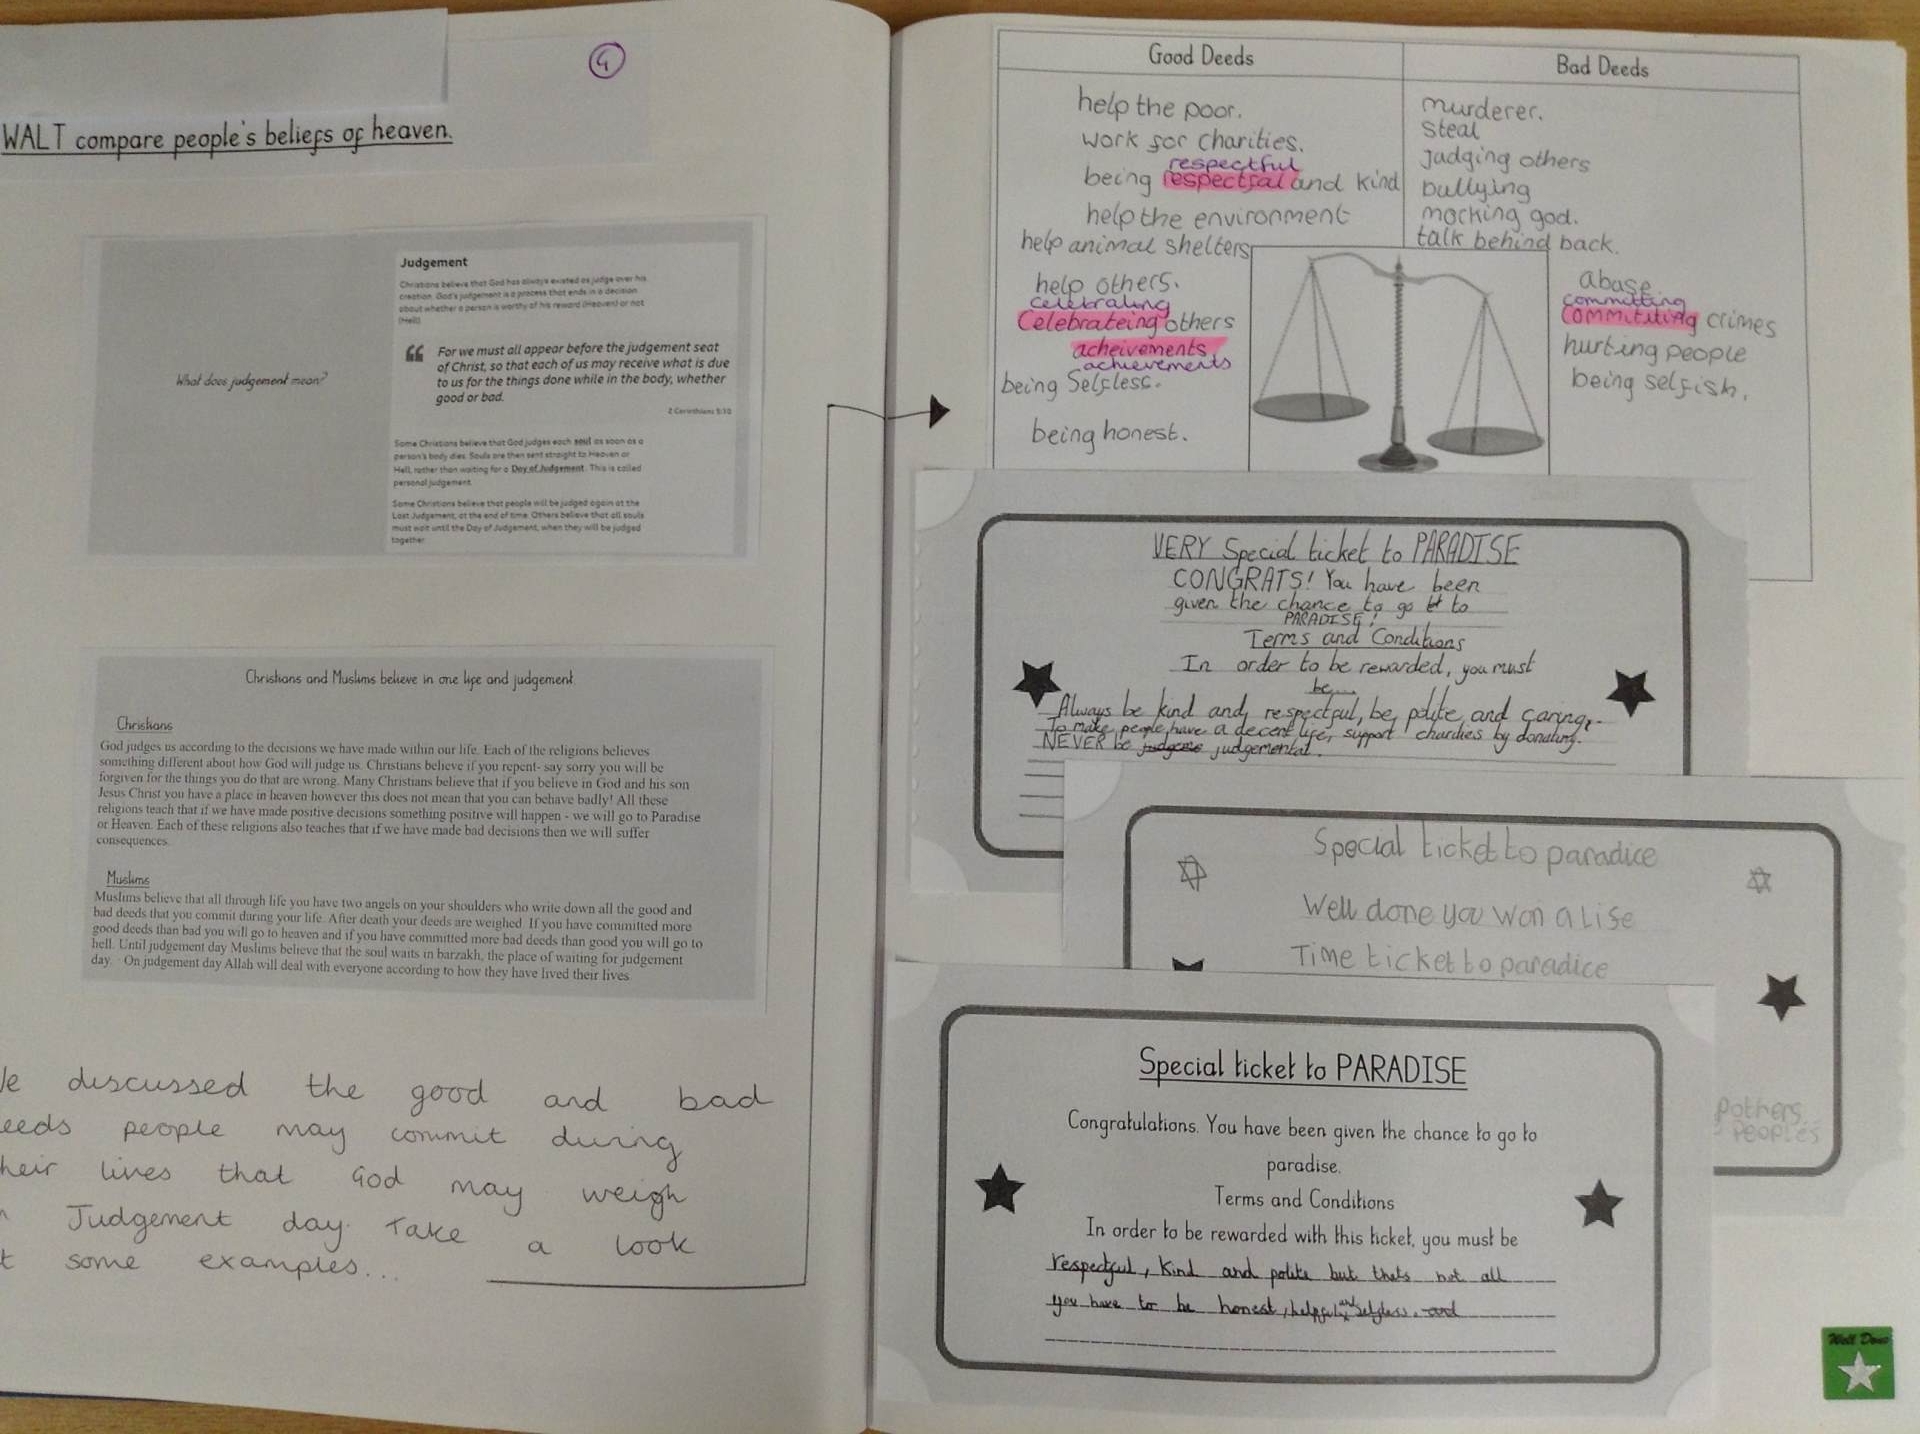 4
WALT compare people's beliefs of heaven.
What does judgement mean?
Judgement
Christians believe that God has always existed as judge over his
creation. God's judgement is a process that ends in a decision
about whether a person is worthy of his reward (Heaven) or not
(Hell).
For we must all appear before the judgement seat
of Christ, so that each of us may receive what is due
to us for the things done while in the body, whether
good or bad.
2 Corinthians 5:10
Some Christians believe that God judges each soul as soon as a
person's body dies. Souls are then sent straight to Heaven or
Hell, rather than waiting for a Day of Judgement. This is called
personal judgement.
Some Christians believe that people will be judged again at the
Last Judgement, at the end of time. Others believe that all souls
must wait until the Day of Judgement, when they will be judged
together.
Christians and Muslims believe in one life and judgement.
Christians
God judges us according to the decisions we have made within our life. Each of the religions believes
something different about how God will judge us. Christians believe if you repent- say sorry you will be
forgiven for the things you do that are wrong. Many Christians believe that if you believe in God and his son
Jesus Christ you have a place in heaven however this does not mean that you can behave badly! All these
religions teach that if we have made positive decisions something positive will happen - we will go to Paradise
or Heaven. Each of these religions also teaches that if we have made bad decisions then we will suffer
consequences.
Muslims
Muslims believe that all through life you have two angels on your shoulders who write down all the good and
bad deeds that you commit during your life. After death your deeds are weighed. If you have committed more
good deeds than bad you will go to heaven and if you have committed more bad deeds than good you will go to
hell. Until judgement day Muslims believe that the soul waits in barzakh, the place of waiting for judgement
day. On judgement day Allah will deal with everyone according to how they have lived their lives
e discussed the good and bad
eeds people may commit during
heir lives that God may weigh
Judgement day. Take a look
t some examples...
Good Deeds
help the poor.
work for charities.
respectful
being respectfal and kind
help the environment
help animal shelters
help others.
celebrating
Celebrateing others
acheivements
achievements
being Selfless.
being honest.
Bad Deeds
murderer.
Steal
judging others
bullying
mocking god.
talk behind back.
abuse
committing
commititing crimes
hurting people
being selfish.
VERY Special ticket to PARADISE
CONGRATS! You have been
given the chance to go to
PARADISE!
Terms and Conditions
In order to be rewarded, you must
be....
Always be kind and respectful, be polite and caring,
To make people have a decent life, support charities by donating.
NEVER be judgemental.
Special ticket to paradice
Well done you won a life
Time ticket to paradice
others
peoples
Special ticket to PARADISE
Congratulations. You have been given the chance to go to
paradise.
Terms and Conditions
In order to be rewarded with this ticket, you must be
respectful, kind and polite but thats not all
you have to be honest, helpful and selfless. and
Well Done